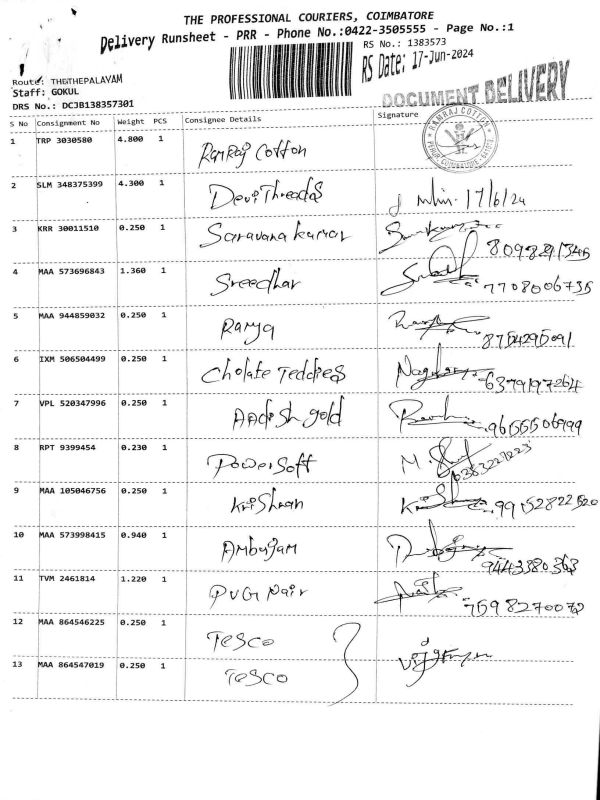 THE PROFESSIONAL COURIERS, COIMBATORE
Delivery Runsheet - PRR - Phone No.:0422-3505555 - Page No.:1
RS No.: 1383573
RS Date: 17-Jun-2024
Route: THEITHEPALAYAM
Staff: GOKUL
DRS No.: DCJB138357301
DOCUMENT DELIVERY
S No Consignment No Weight PCS Consignee Details Signature
RAMRAJ COTTON
1 TRP 3030580 4.800 1 Ramraj Cotton
2 SLM 348375399 4.300 1 Devi Threads 17/6/24
3 KRR 30011510 0.250 1 Saravana kumar
4 MAA 573696843 1.360 1 Sreedhar 7708006735
5 MAA 944859032 0.250 1 Ramya 8754295091
6 IXM 506504499 0.250 1 Cholate Teddies
7 VPL 520347996 0.250 1 Aadish gold
8 RPT 9399454 0.230 1 Powersoft
9 MAA 105046756 0.250 1 Krishnan
10 MAA 573998415 0.940 1 Ambujam 9443380363
11 TVM 2461814 1.220 1 PVG Nair 7598270072
12 MAA 864546225 0.250 1 Tesco
13 MAA 864547019 0.250 1 Tesco